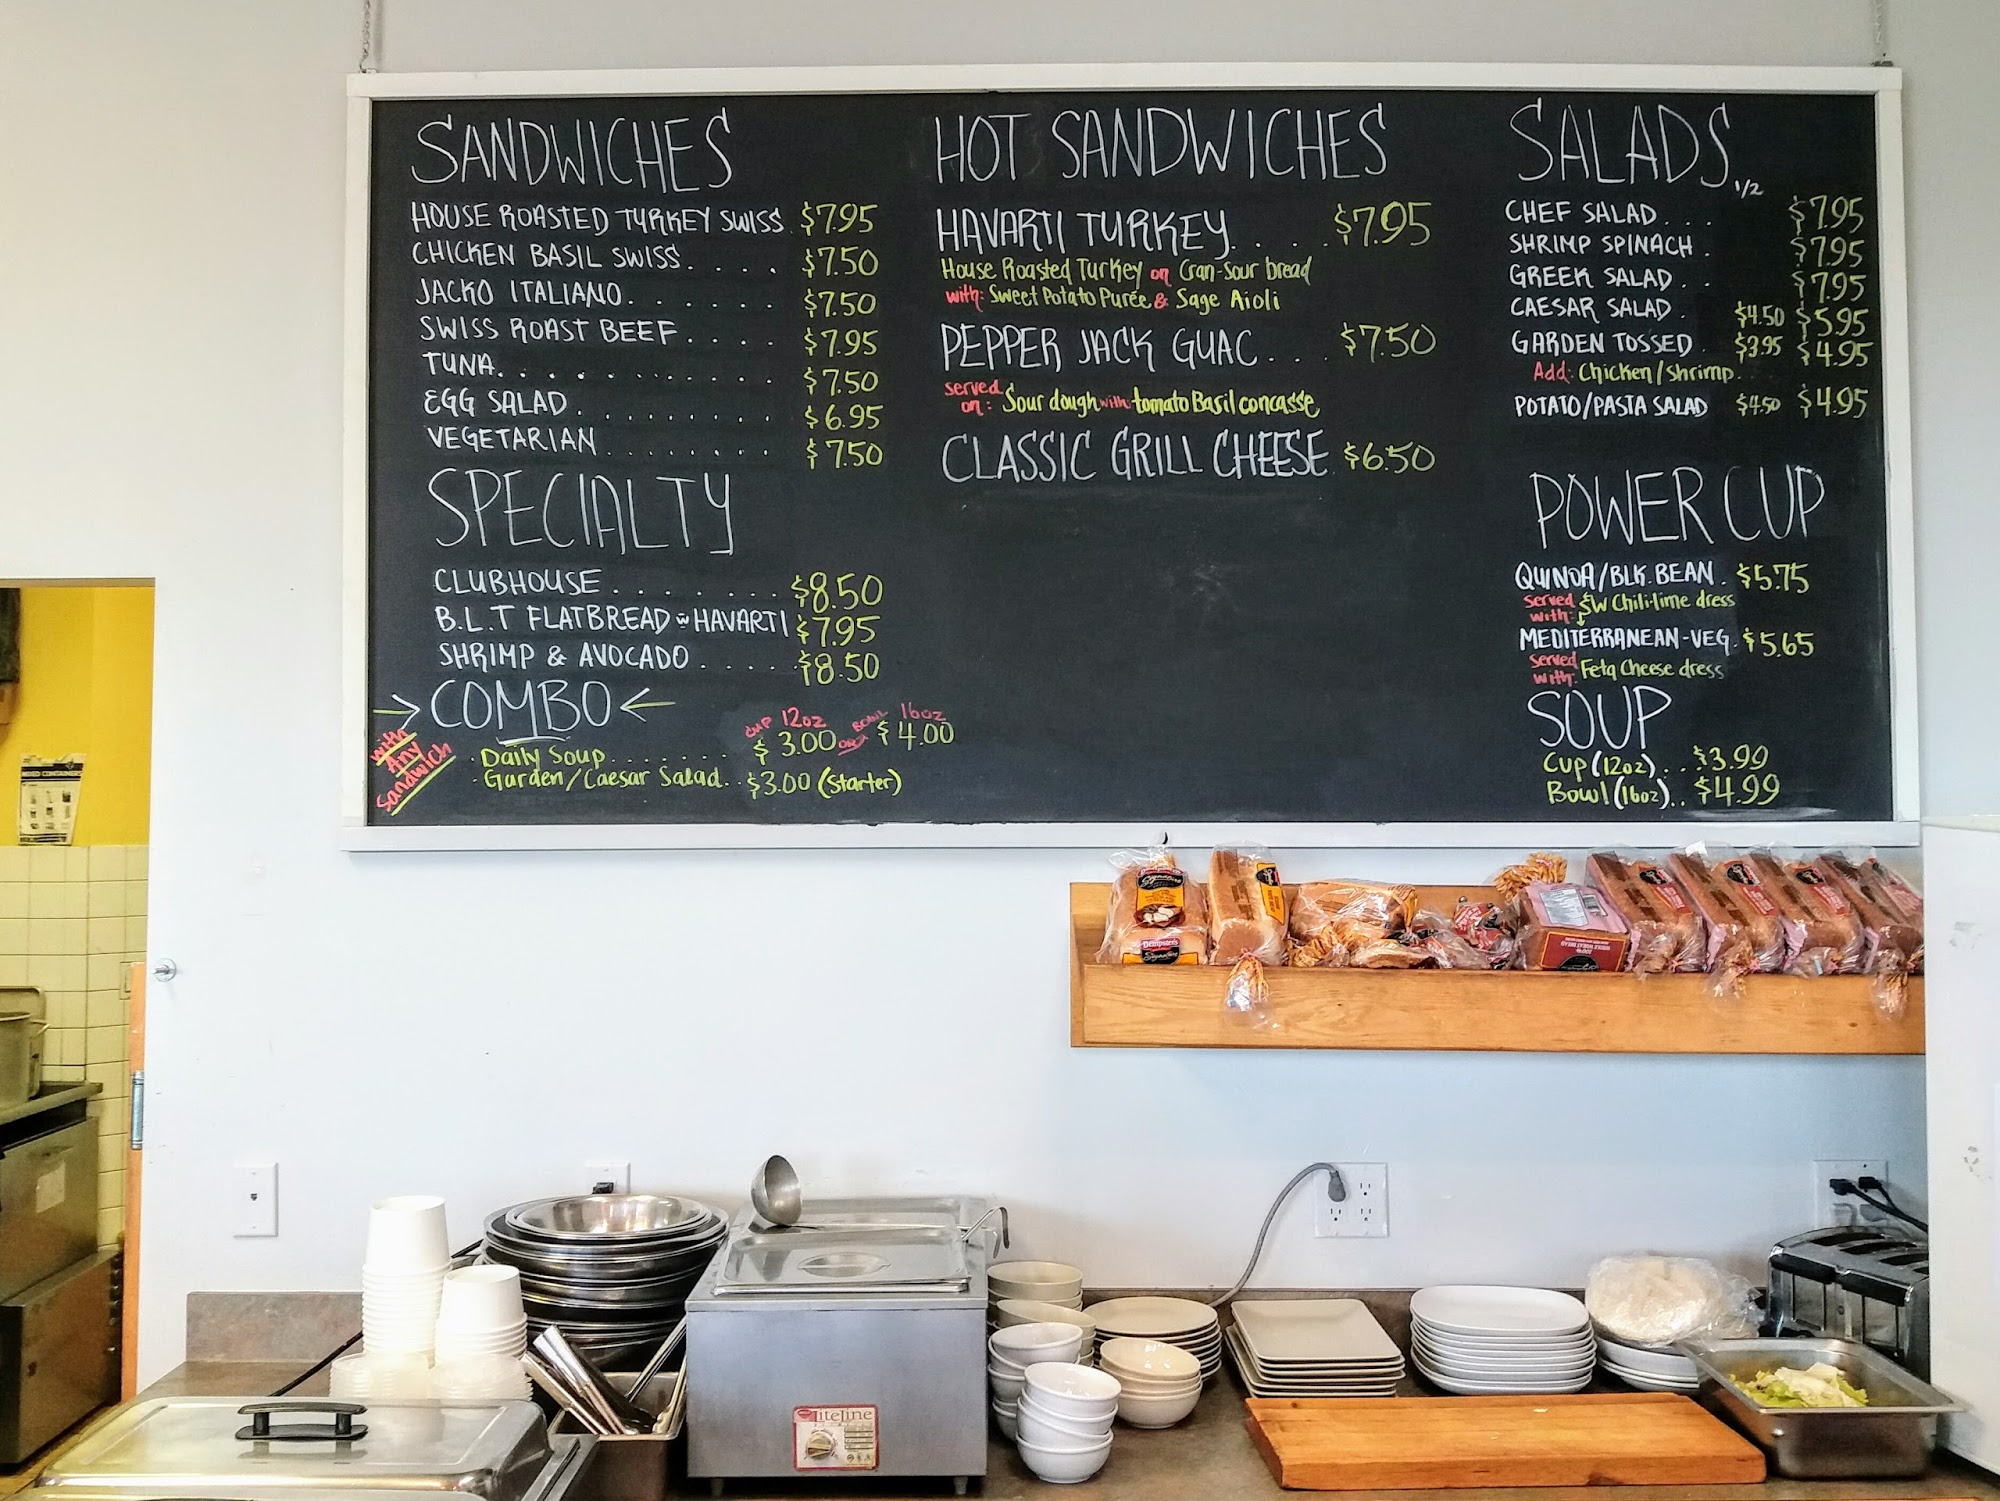 SANDWICHES
HOUSE ROASTED TURKEY SWISS $7.95
CHICKEN BASIL SWISS.... $7.50
JACKO ITALIANO....... $7.50
SWISS ROAST BEEF.... $7.95
TUNA............ $7.50
EGG SALAD......... $6.95
VEGETARIAN........ $7.50
SPECIALTY
CLUBHOUSE........ $8.50
B.L.T FLATBREAD w HAVARTI $7.95
SHRIMP & AVOCADO..... $8.50
COMBO
with Any Sandwich
CUP 12oz OR BOWL 16oz
· Daily Soup....... $3.00 $4.00
· Garden/Caesar Salad.. $3.00 (Starter)
HOT SANDWICHES
HAVARTI TURKEY..... $7.95
House Roasted Turkey on Cran-sour bread
with: Sweet Potato Purée & Sage Aioli
PEPPER JACK GUAC.... $7.50
served on: Sour dough with tomato Basil concasse
CLASSIC GRILL CHEESE $6.50
SALADS
1/2
CHEF SALAD... $7.95
SHRIMP SPINACH. $7.95
GREEK SALAD.. $7.95
CAESAR SALAD. $4.50 $5.95
GARDEN TOSSED. $3.95 $4.95
Add: Chicken/shrimp.
POTATO/PASTA SALAD $4.50 $4.95
POWER CUP
QUINOA/BLK. BEAN. $5.75
served with: SW Chili-lime dress
MEDITERRANEAN-VEG. $5.65
served with: Feta Cheese dress
SOUP
Cup (12oz)... $3.99
Bowl (16oz).. $4.99
Dempster's
Signature
LiteLine